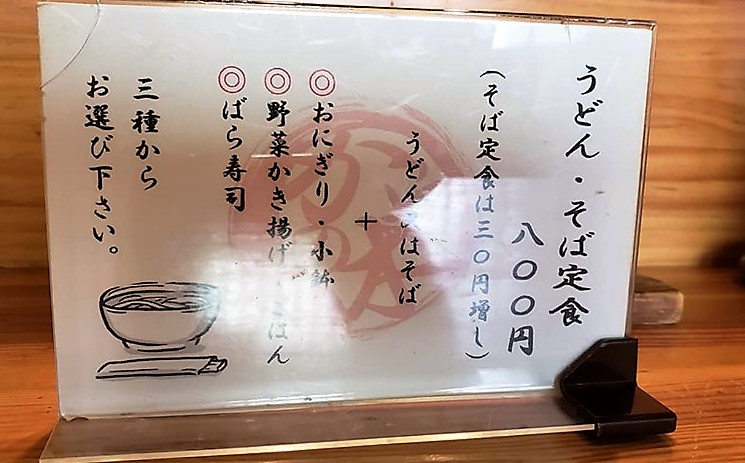 うどん・そば定食
八〇〇円
（そば定食は三〇円増し）
うどん又はそば
＋
◎おにぎり・小鉢
◎野菜かき揚げ・ごはん
◎ばら寿司
三種から
お選び下さい。